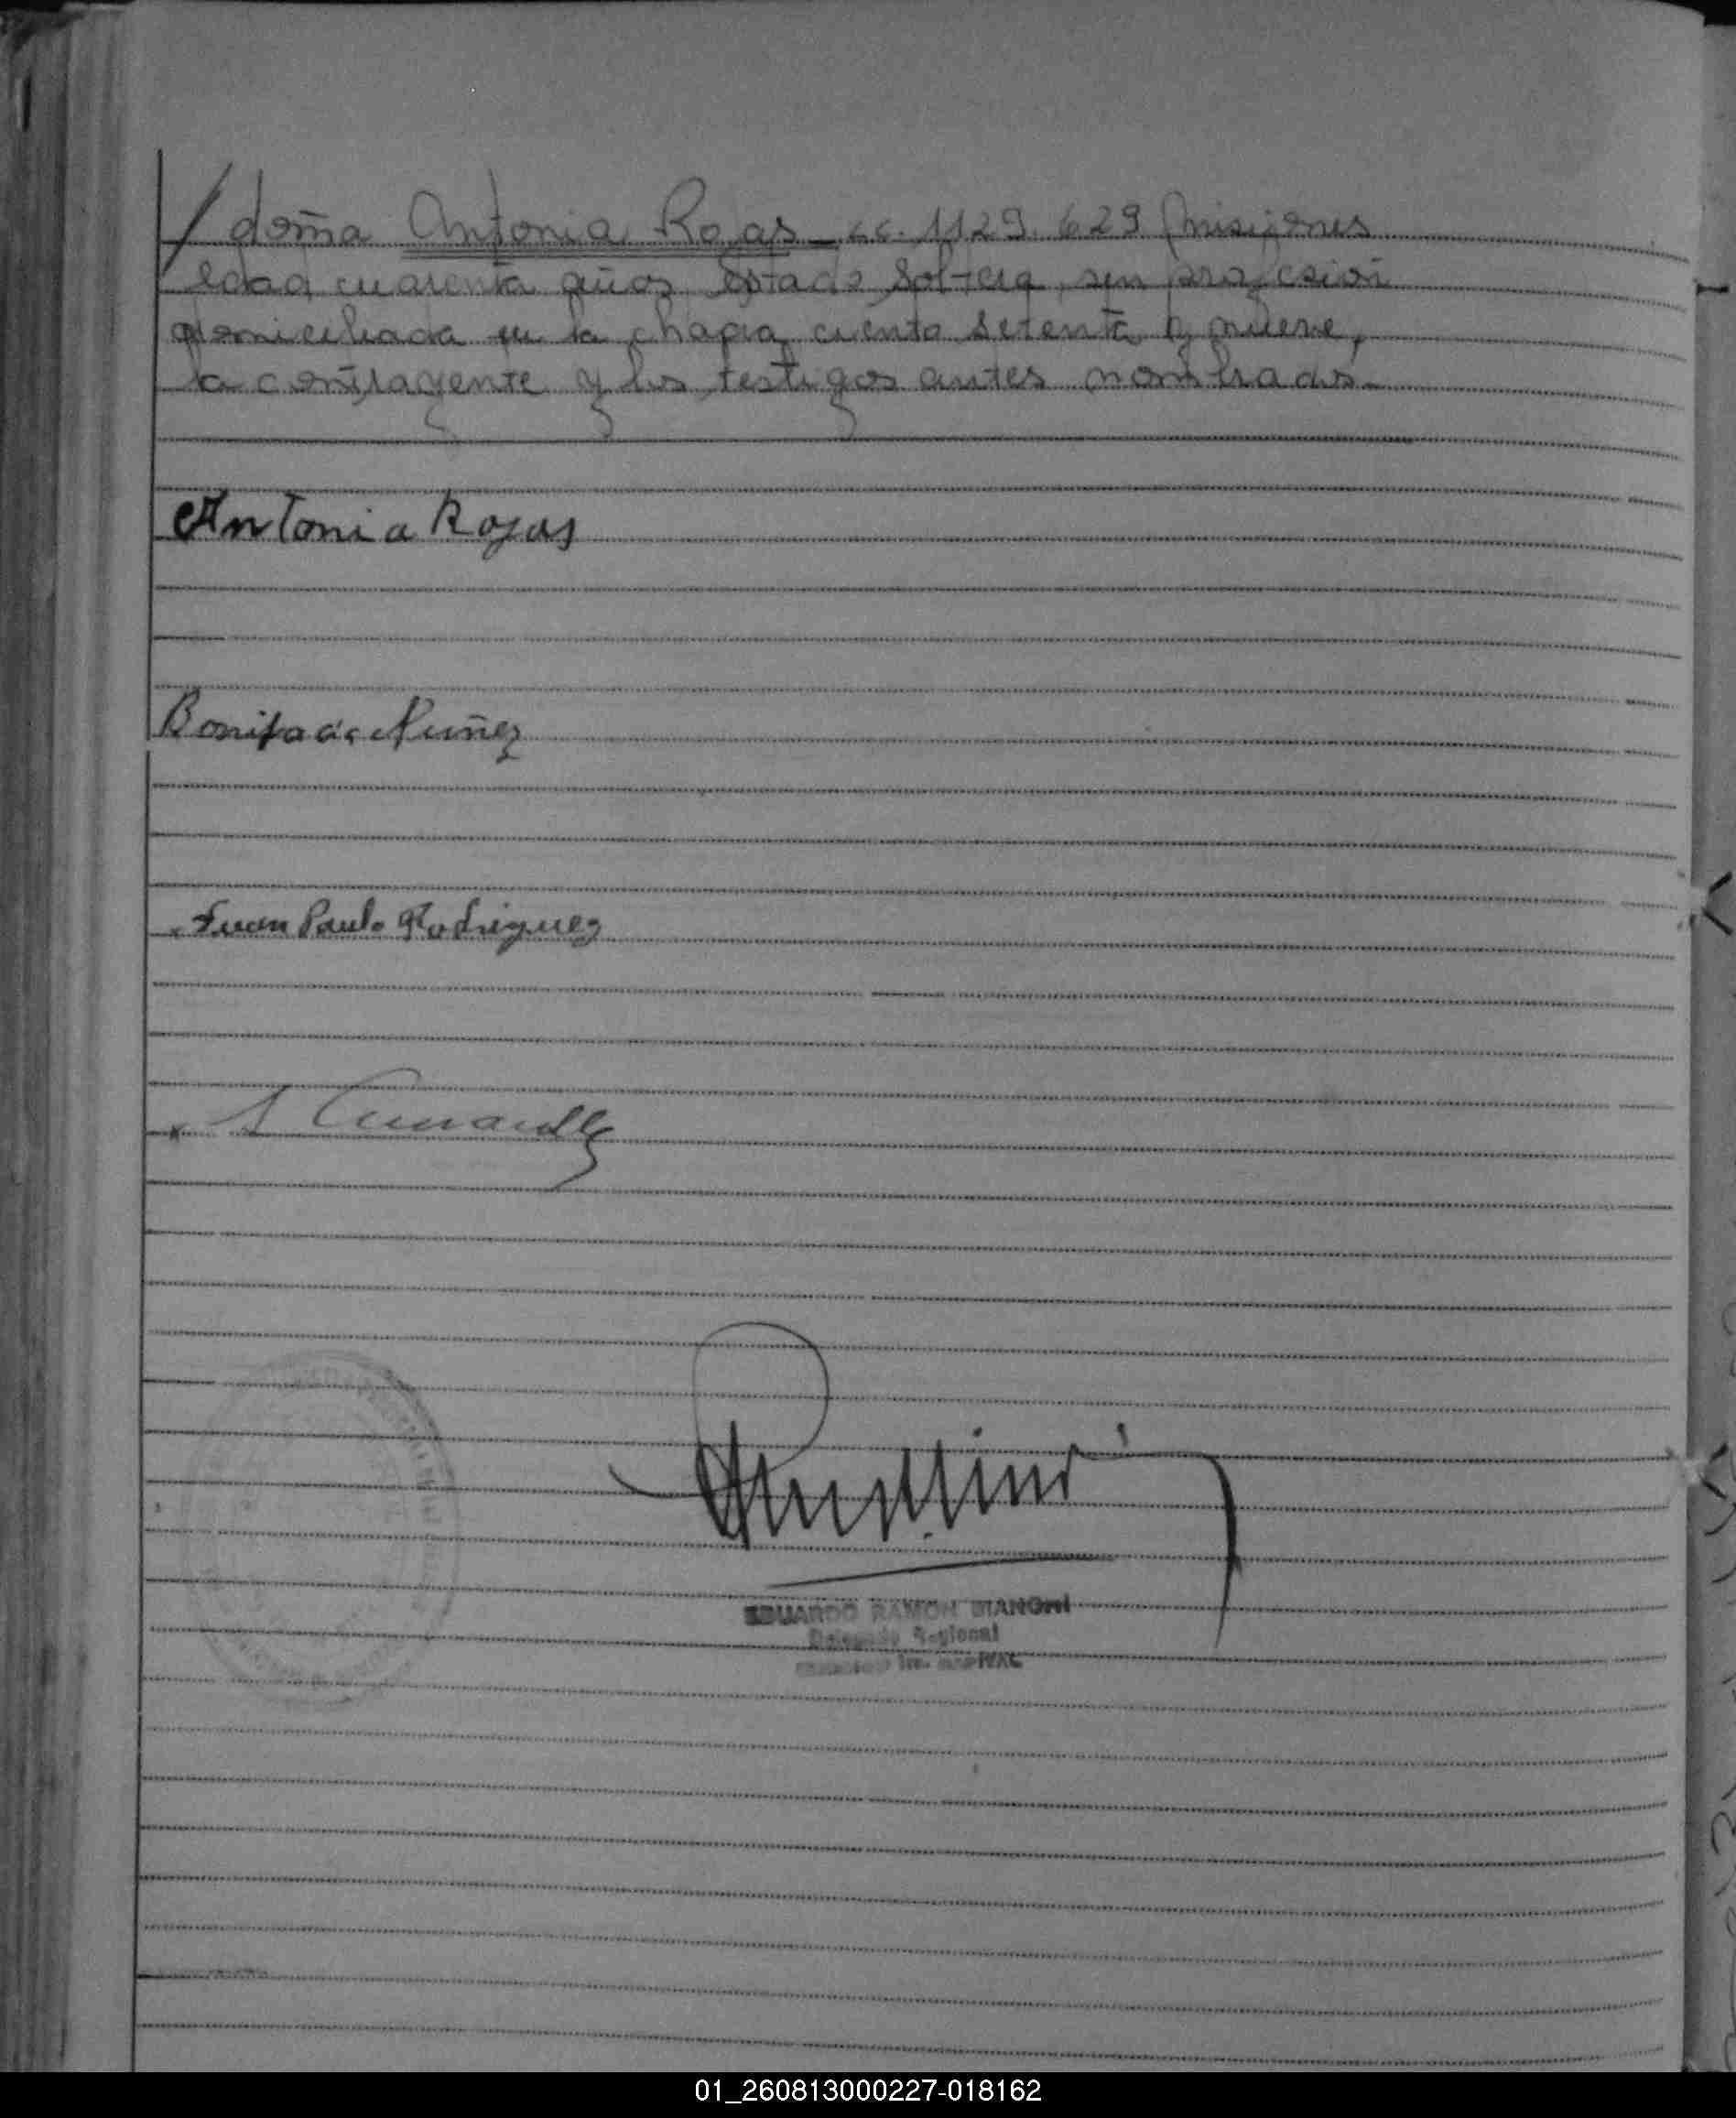 / doña Antonia Rojas - c.c. 1129.629 Misiones
edad cuarenta años, estado soltera, sin profesión
domiciliada en la chacra ciento setenta y nueve,
la contrayente y los testigos antes nombrados.-
Antonia Rojas
Bonifacia Nuñez
x Juan Paulo Rodriguez
x
EDUARDO RAMON BIANGHI
Delegado Regional
01_260813000227-018162